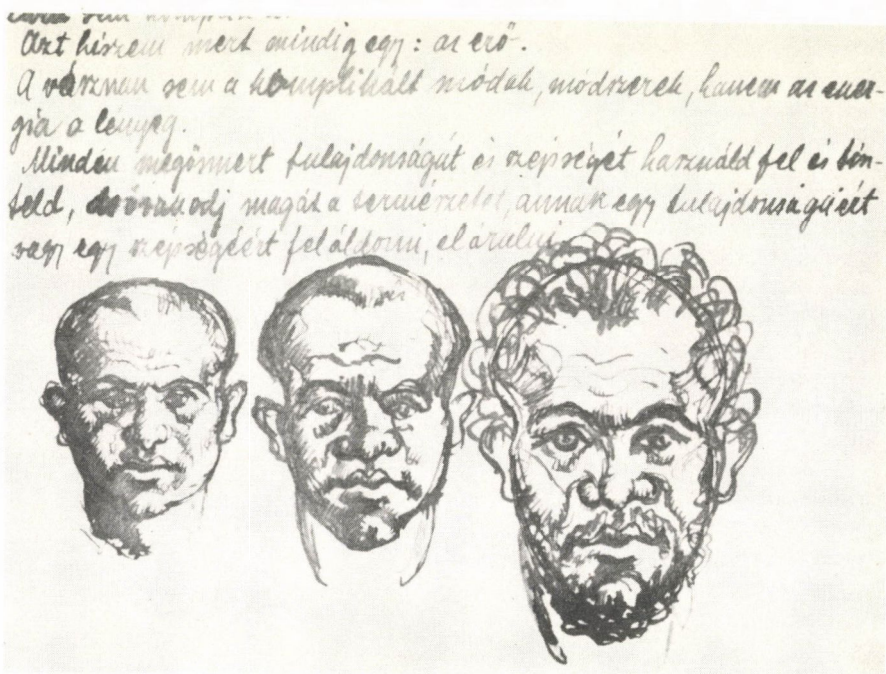 Azt hiszem mert mindig egy: az erő.
A vásznan sem a komplikált módok, módszerek, hanem az ener-
gia a lényeg.
Minden megismert tulajdonságát és szépségét használd fel és tün-
teld, de óvakodj magát a természetet, annak egy tulajdonságáért
vagy egy szépségéért feláldozni, elárulni.